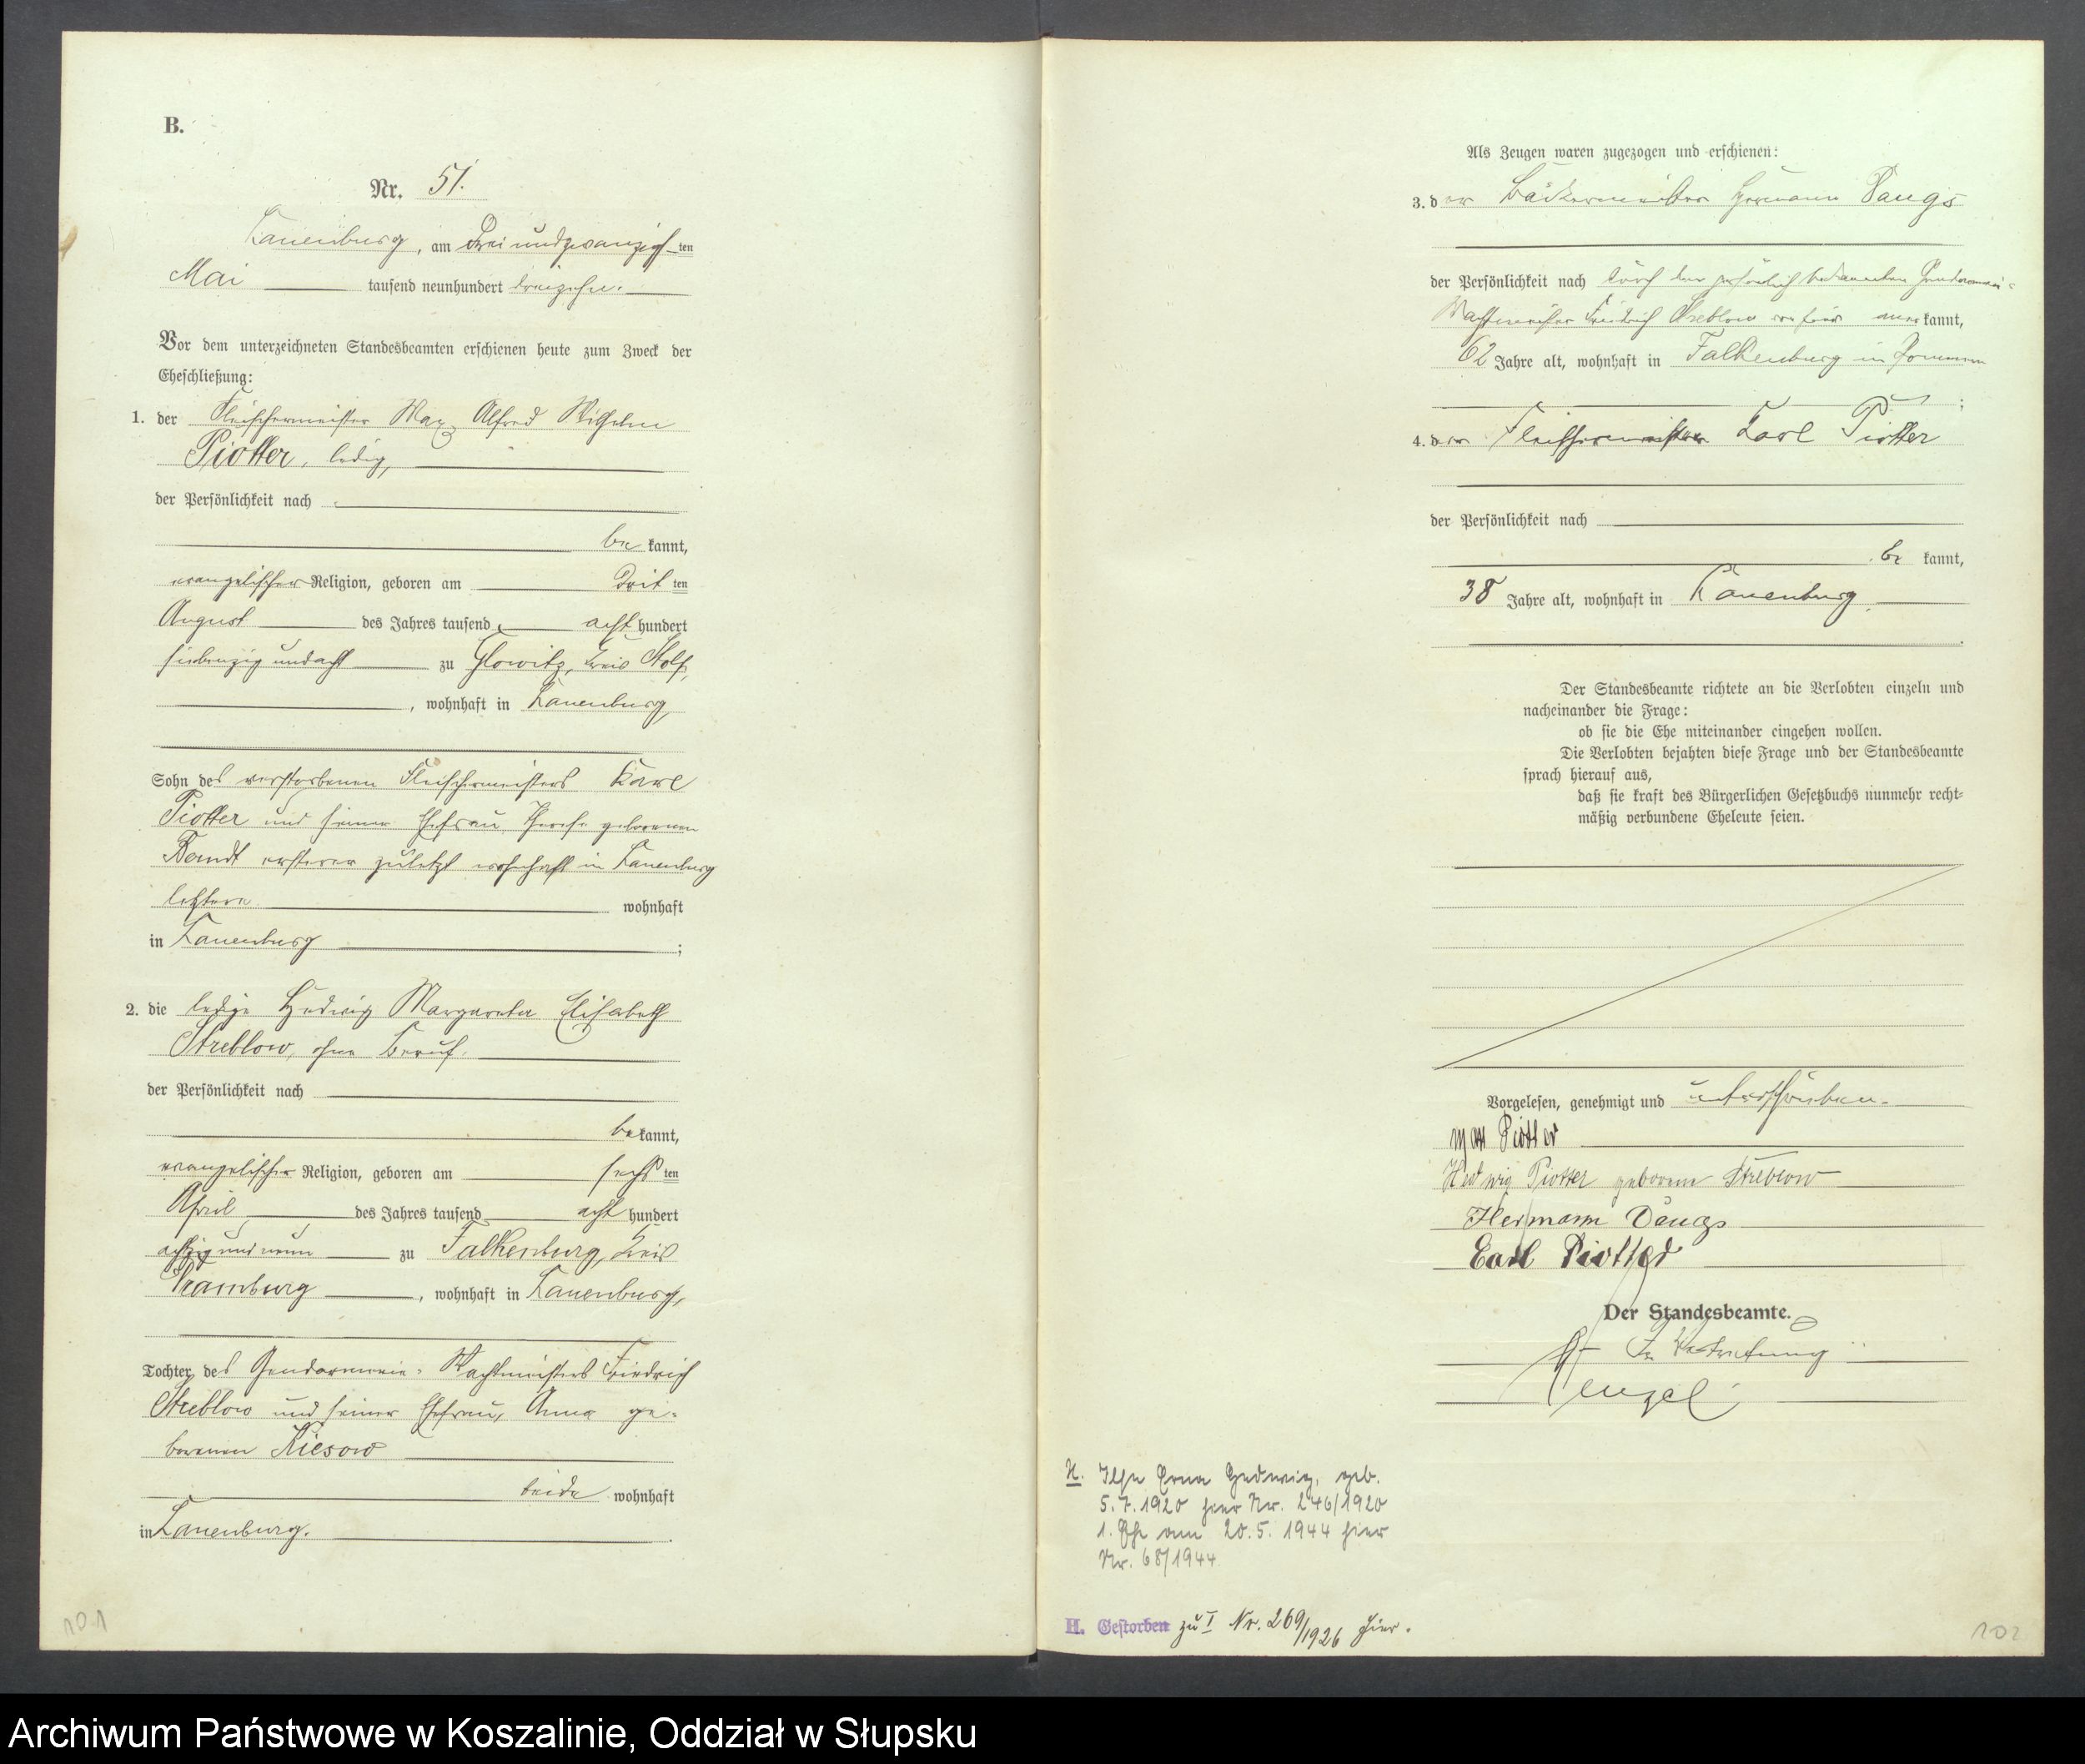 B.
Nr. 51.
Lauenburg, am Drei und zwanzigsten
Mai tausend neunhundert dreizehn.
Vor dem unterzeichneten Standesbeamten erschienen heute zum Zweck der
Eheschließung:
1. der Fleischermeister Max Alfred Wilhelm
Piotter, ledig,
der Persönlichkeit nach
be kannt,
evangelischer Religion, geboren am dritten
August des Jahres tausend acht hundert
siebenzig und acht zu Glowitz, Kreis Stolp,
, wohnhaft in Lauenburg
Sohn des verstorbenen Fleischermeisters Karl
Piotter und seiner Ehefrau Therese geborenen
Bandt ersterer zuletzt wohnhaft in Lauenburg
letztere wohnhaft
in Lauenburg ;
2. die ledige Hedwig Margareta Elisabeth
Streblow, ohne Beruf.
der Persönlichkeit nach
be kannt,
evangelischer Religion, geboren am sechsten
April des Jahres tausend acht hundert
achtzig und neun zu Falkenburg, Kreis
Dramburg , wohnhaft in Lauenburg,
Tochter des Gendarmerie-Wachtmeisters Friedrich
Streblow und seiner Ehefrau, Anna ge-
borenen Kiesow
beide wohnhaft
in Lauenburg.
101
Als Zeugen waren zugezogen und erschienen:
3. der Bäckermeister Hermann Daugs
der Persönlichkeit nach durch den persönlich bekannten Gendarmerie-
Wachtmeister Friedrich Streblow von hier anerkannt,
62 Jahre alt, wohnhaft in Falkenburg in Pommern
;
4. der Fleischermeister Karl Piotter
der Persönlichkeit nach
be kannt,
38 Jahre alt, wohnhaft in Lauenburg
Der Standesbeamte richtete an die Verlobten einzeln und
nacheinander die Frage:
ob sie die Ehe miteinander eingehen wollen.
Die Verlobten bejahten diese Frage und der Standesbeamte
sprach hierauf aus,
daß sie kraft des Bürgerlichen Gesetzbuchs nunmehr recht-
mäßig verbundene Eheleute seien.
Vorgelesen, genehmigt und unterschrieben.
Max Piotter
Hedwig Piotter geborene Streblow
Hermann Daugs
Carl Piotter
Der Standesbeamte.
In Vertretung
Hengel
H. Ilse Erna Hedwig, geb.
5.7.1920 hier Nr. 246/1920
1. Ehe am 20.5.1944 hier
Nr. 68/1944
H. Gestorben zu I Nr. 269/1926 hier.
102
Archiwum Państwowe w Koszalinie, Oddział w Słupsku